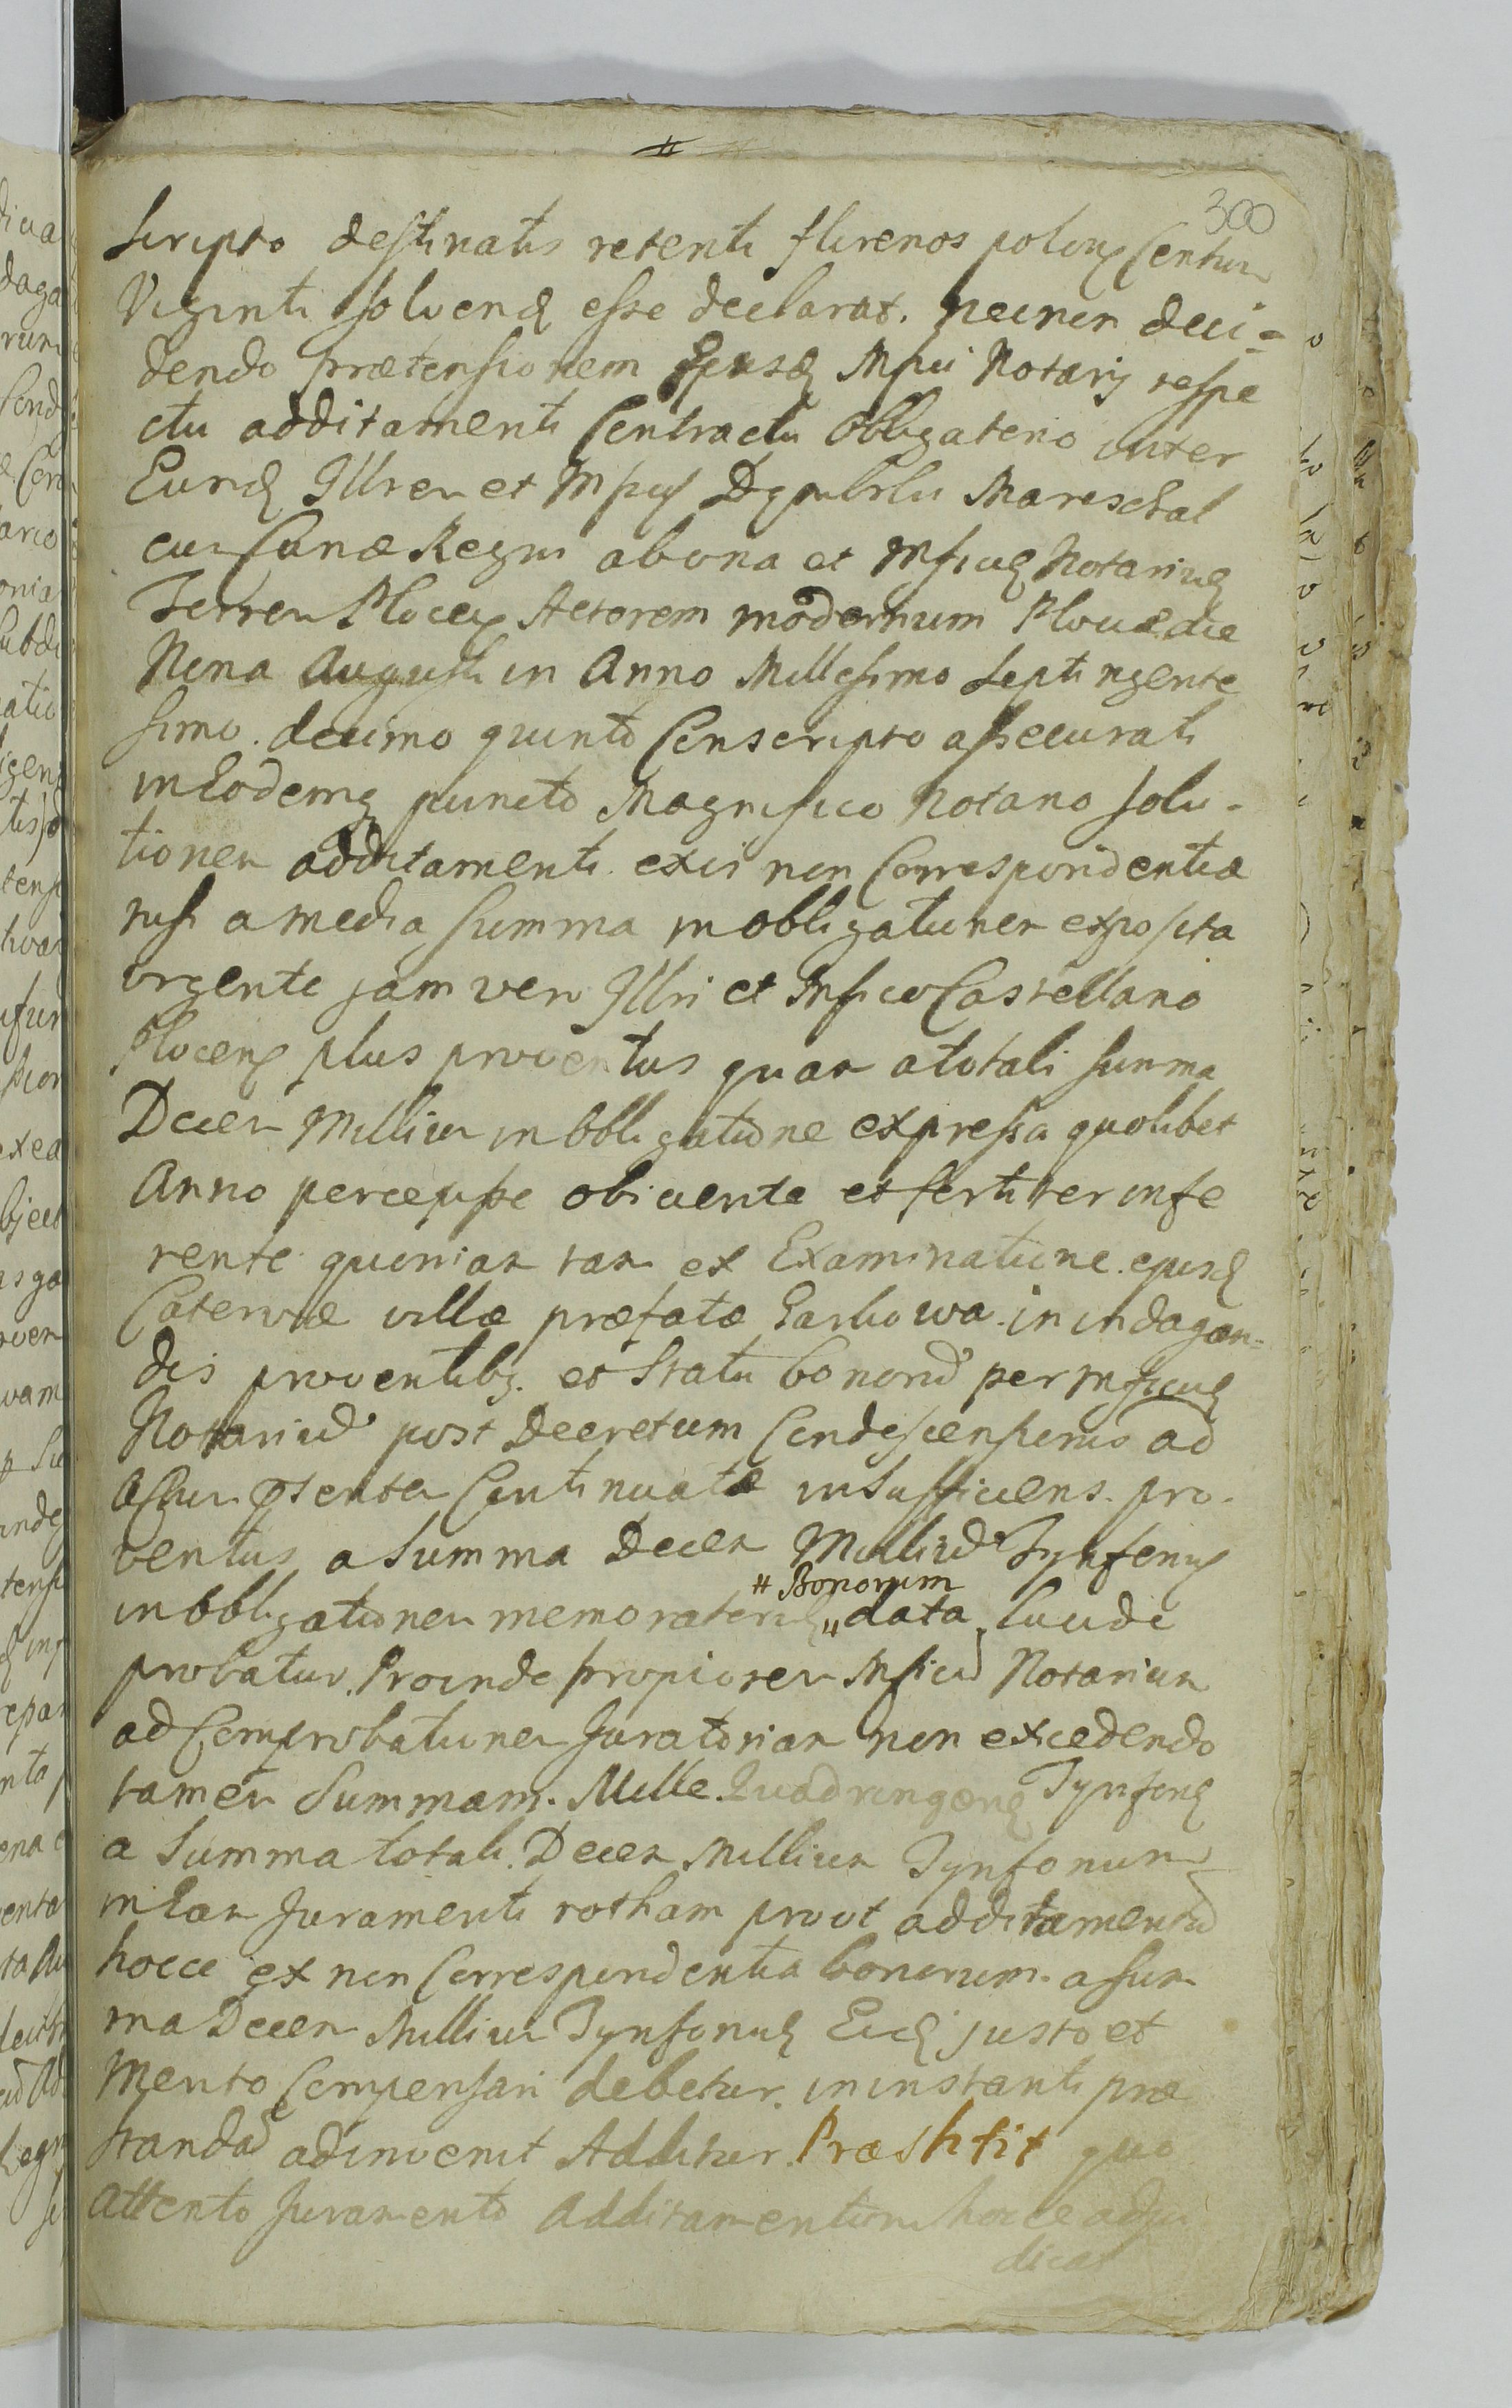 300
scripto destinatis retenti florenos polonq Centum
Viginti solvend esse declarat. necnon deci=
dendo prætensionem Ejusd Mfici Notarij respe
ctu additamenti Contractu Obligatorio inter
Eund Illrem et Mficu Mareschal
cum Curiæ Regni ab una et Mficuq Notariuq
Terren Plocen Actorem modernum Plociæ die
Nona Augusti in Anno Millesimo septingente
simo decimo quinto Conscripto assecurati
in Eodemq puncto Magnifico Notario solu-
tionem additamenti ex non Correspondentiæ
nisi a media summa in obligationem exposita
urgente jam vero Illri et Mfico Castellano
Plocen plus proventus quam a totali summa
Decem Millium in obligatione expressa quolibet
Anno percepisse obiicente et fortiter infe
rente quoniam tam ex Examinatione ejusd
Catervæ villæ præfatæ in indagan=
dis proventibq et Statu bonorum per Mficuq
Notarium post Decretum Condescensionis ad
Actum pntem Continuatæ insufficiens pro-
ventus a summa Decem Millium Tynfonuq
# Bonorum
in obligationem memoratoruq " data lucide
probatur. Proinde propiorem Mficum Notarium
ad Comprobationem Juratoriam non excedendo
tamen Summam. Mille Quadringenq Tynfonq
a Summa totali Decem Millium Tynfonum
in Eam Juramenti rotham prout additamentum
hocce ex non Correspondentia bonorum a sum
ma Decem Millium Tynfonuq Eid justo et
Merito Compensari debetur. in instanti præ
standam adinvenit Additur. Præstitit quo
Attento Juramento Additamentum hocce adju
dicat